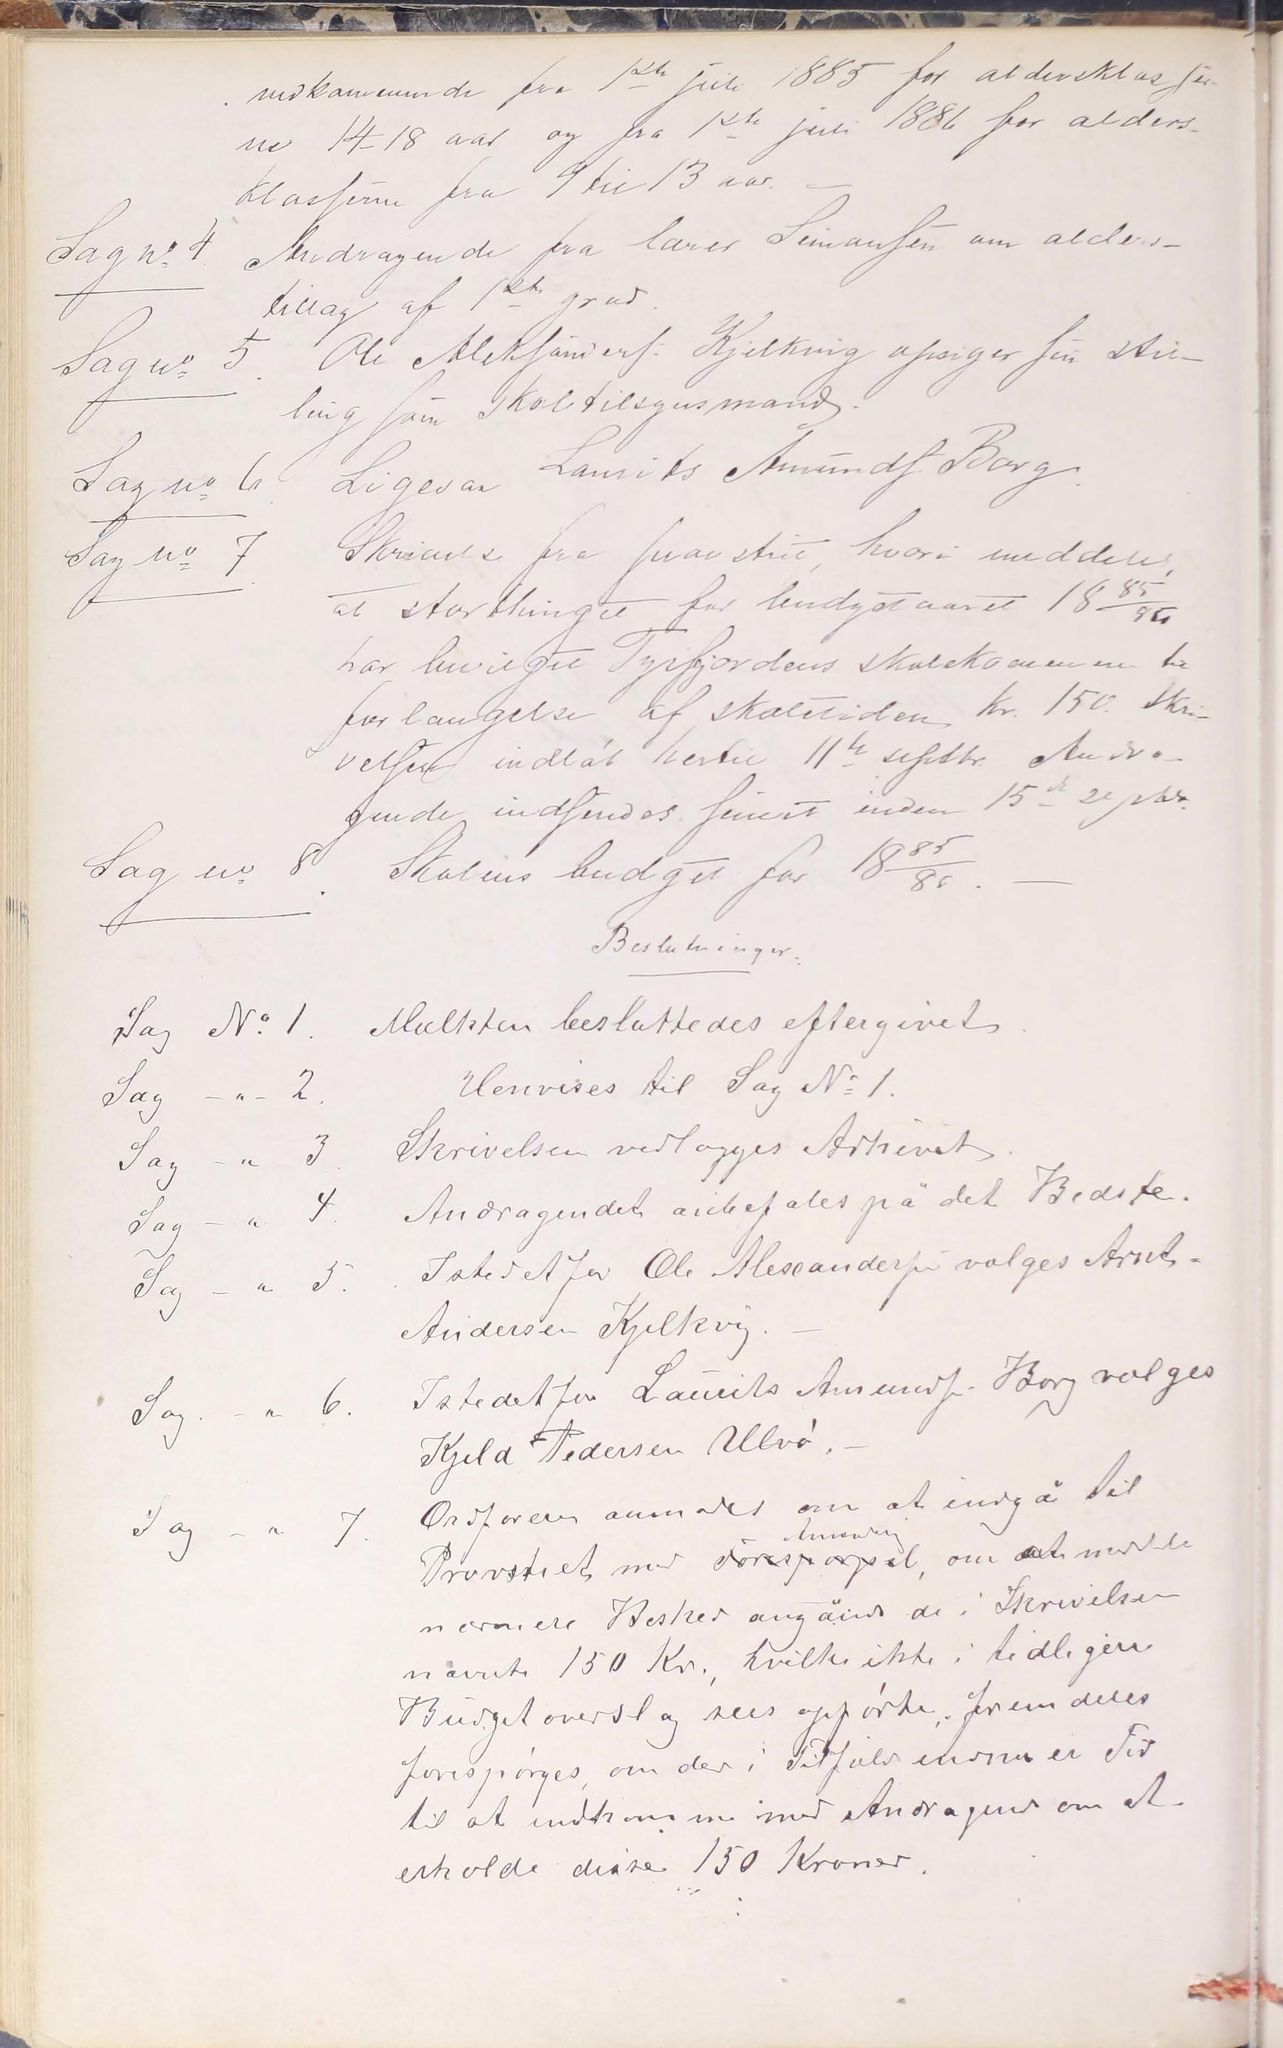 vedkommende fra 1ste juli 1885 for aldersklasser-
ne 14-18 aar og fra 1ste juli 1886 for alders-
klasserne fra 9 til 13 aar. —
Sag no. 4. Andragende fra lærer Simonsen om alders-
tillæg af 1ste grad.
Sag no. 5. Ole Aleksanders. Kjelkvig opsiger sin stil-
ling som skoletilsynsmand.
Sag no. 6. Ligesaa Laurits Amunds. Borg.
Sag no. 7. Skrivelse fra provstiet, hvori meddeles,
at storthinget for budgetaaret 18 85/86
har bevilget Tysfjordens skolekommune til
forlængelse af skoletiden kr. 150. Skri-
velsen indløb hertil 11te septbr. Andra-
gende indsendes senest inden 15de septbr.
Sag no. 8. Skolens budget for 18 85/86. —
Beslutninger.
Sag No. 1. Mulkten besluttedes eftergivet.
Sag -"- 2. Henvises til Sag No. 1.
Sag -" 3. Skrivelsen vedlægges Arkivet.
Sag -" 4. Andragendet anbefales på det Bedste.
Sag -" 5. Istedetfor Ole Alexanders. vælges Arnt
Andersen Kjelkvig. —
Sag -" 6. Istedetfor Laurits Amunds. Borg vælges
Kjeld Pedersen Ulvø. —
Sag -" 7. Ordføreren anmodes om at indgå til
Anmodning
Provstiet med Forespørgsel, om at meddele
nærmere Besked angående de i Skrivelsen
nævnte 150 Kr., hvilke ikke i tidligere
Budgetoverslag sees opførte, fremdeles
forespørges, om der i Tilfælde endnu er Tid
til at indkomme med Andragende om at
erholde disse 150 Kroner.